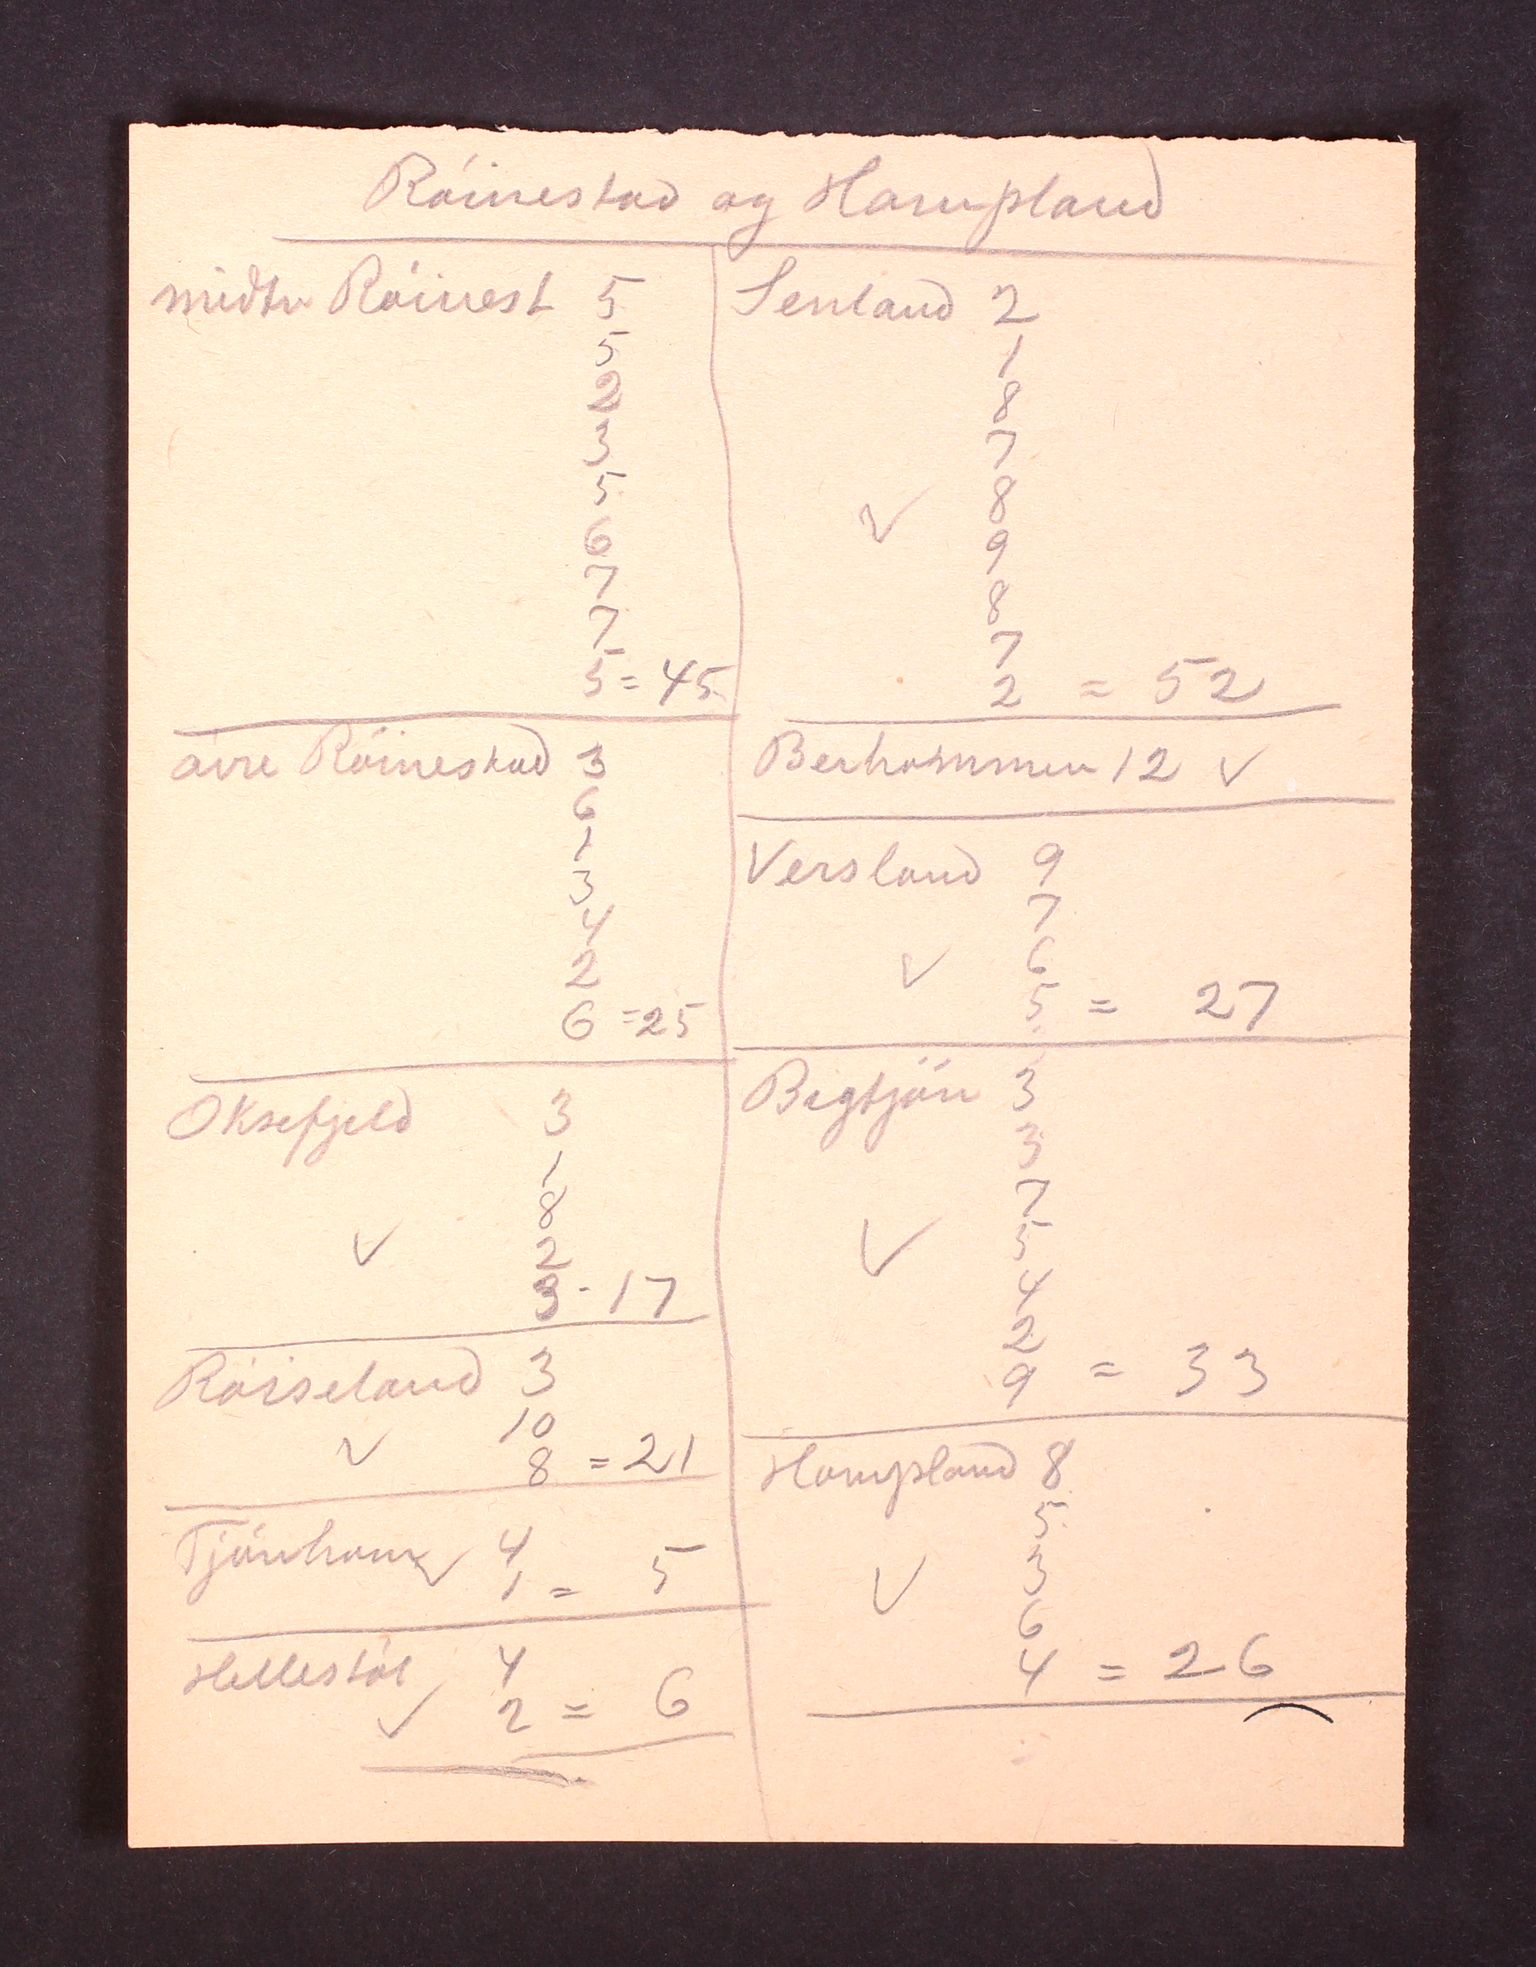 Röinestad og Hampland
midtre Röinest 5
5
2
3
5
6
7
7
5 = 45
øvre Röinestad 3
6
1
3
4
2
6 = 25
Oksefjeld 3
1
8
2
3 - 17
Röiseland 3
10
✓
8 = 21
Tjönhom ✓ 4
1 = 5
Hellestöl 4
✓ 2 = 6
Senland 2
1
8
7
8
✓
9
8
7
2 = 52
Berhommen 12 ✓
Versland 9
7
✓ 6
5 = 27
Begtjön 3
3
7
✓ 5
4
2
9 = 33
Hampland 8
5
✓ 3
6
4 = 26